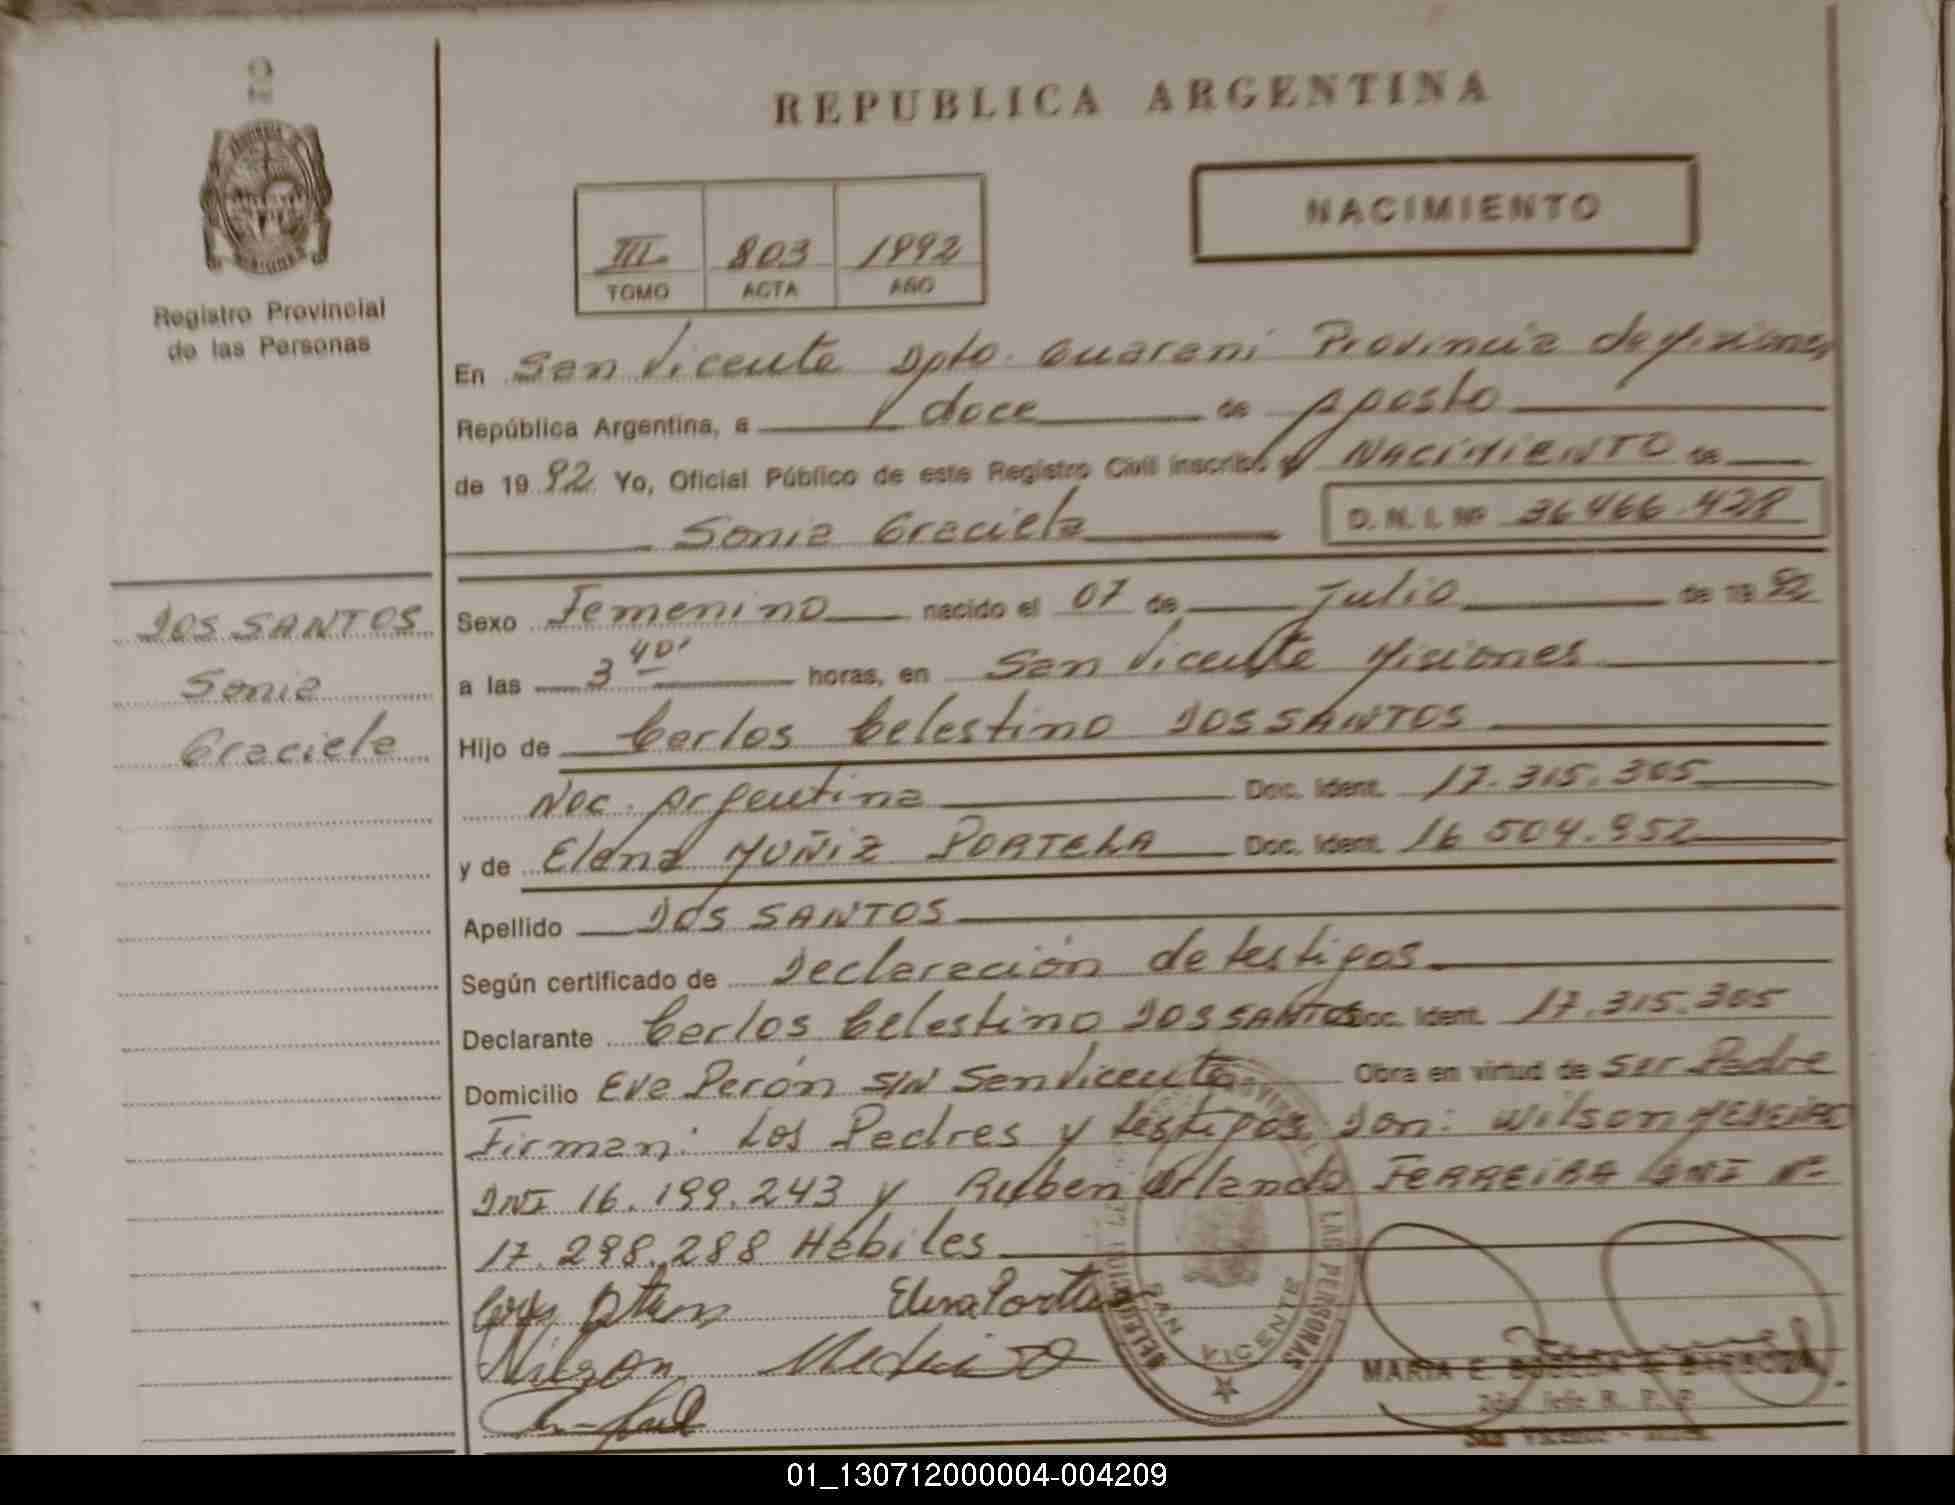 REPUBLICA ARGENTINA
NACIMIENTO
III 803 1992
TOMO ACTA AÑO
Registro Provincial
de las Personas
DOS SANTOS
Sonia
Graciela
En San Vicente Dpto. Guaraní Provincia de Misiones,
República Argentina, a doce de Agosto
de 1992 Yo, Oficial Público de este Registro Civil inscribo el NACIMIENTO de
Sonia Graciela D. N. I. Nº 36.466.428
Sexo Femenino nacido el 07 de Julio de 1992
a las 3 40' horas, en San Vicente Misiones
Hijo de Carlos Celestino DOS SANTOS
Nac. Argentina Doc. Ident. 17.315.305
y de Elena MUÑIZ PORTELA Doc. Ident. 16 504.952
Apellido DOS SANTOS
Según certificado de Declaración de testigos
Declarante Carlos Celestino DOS SANTOS Doc. Ident. 17.315.305
Domicilio Eva Perón S/N San Vicente Obra en virtud de Ser Padre
Firman: Los Padres y testigos Don: Wilson
DNI 16.199.243 y Ruben Orlando FERREIRA DNI Nº
17.298.288 Hábiles
Elena Portela
SAN VICENTE
LAS PERSONAS
MARIA E.
01_130712000004-004209